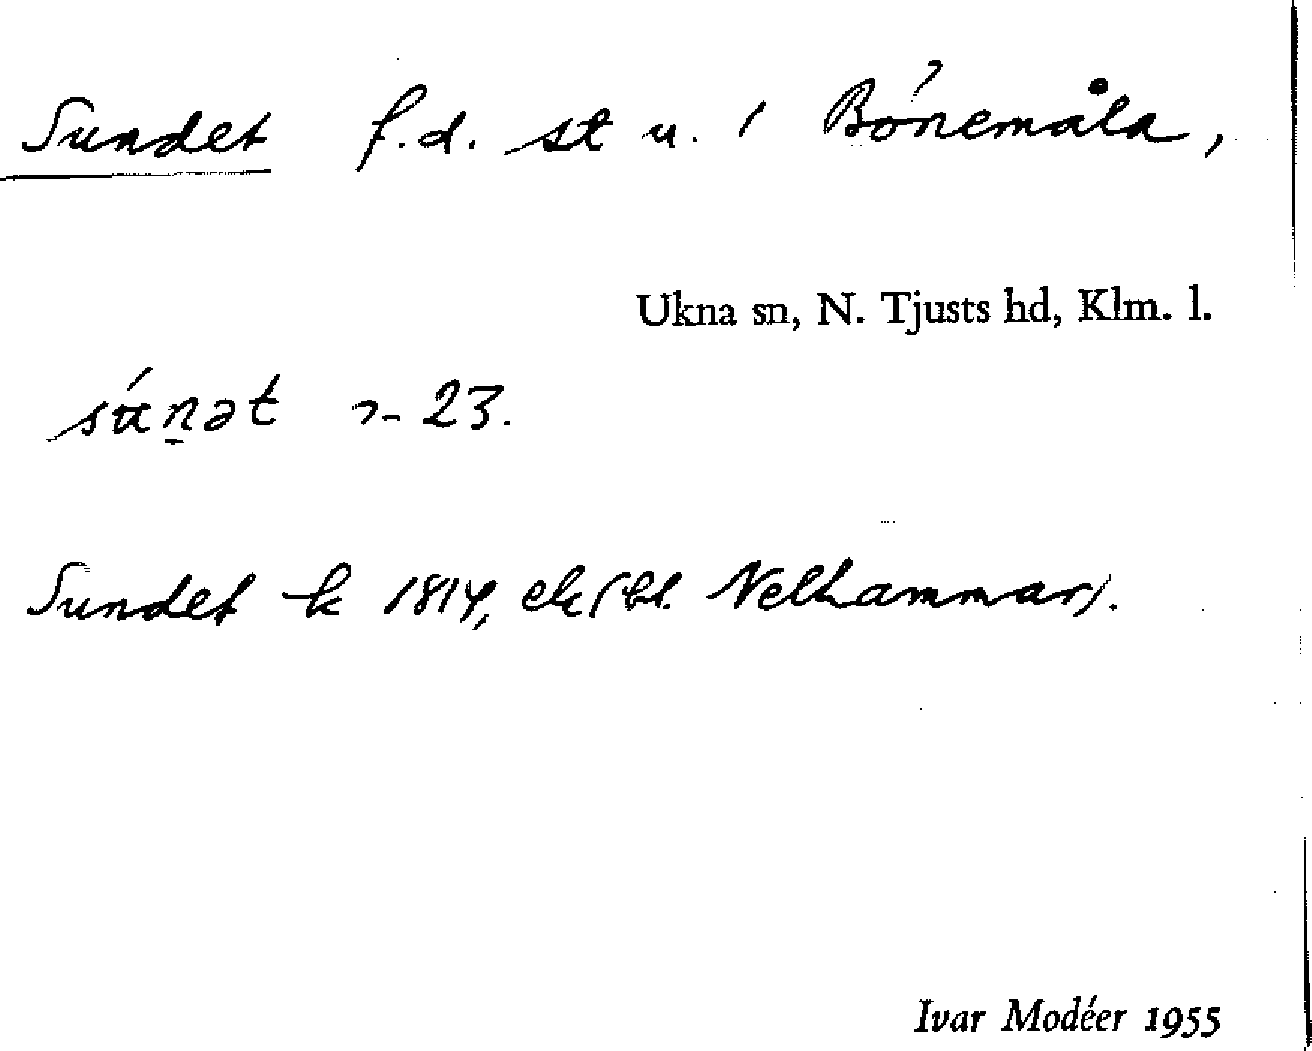 Sundet f.d. st u. 1 Bönemåla,
Ukna sn, N. Tjusts hd, Klm. l.
23.
Sundet k 1814, ek (bl. Nelhammar).
Ivar Modéer 1955